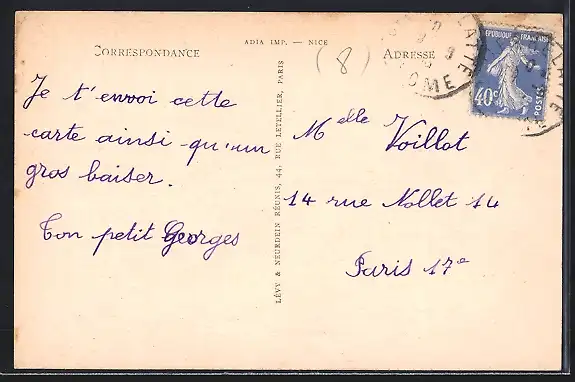 ADIA IMP. — NICE
CORRESPONDANCE
Je t'envoi cette
carte ainsi qu'un
gros baiser.
Ton petit Georges
LÉVY & NEURDEIN RÉUNIS, 44, RUE LETELLIER, PARIS
(8)
ADRESSE
RÉPUBLIQUE FRANÇAISE
40c
POSTES
Melle Voillot
14 rue Nollet 14
Paris 17e